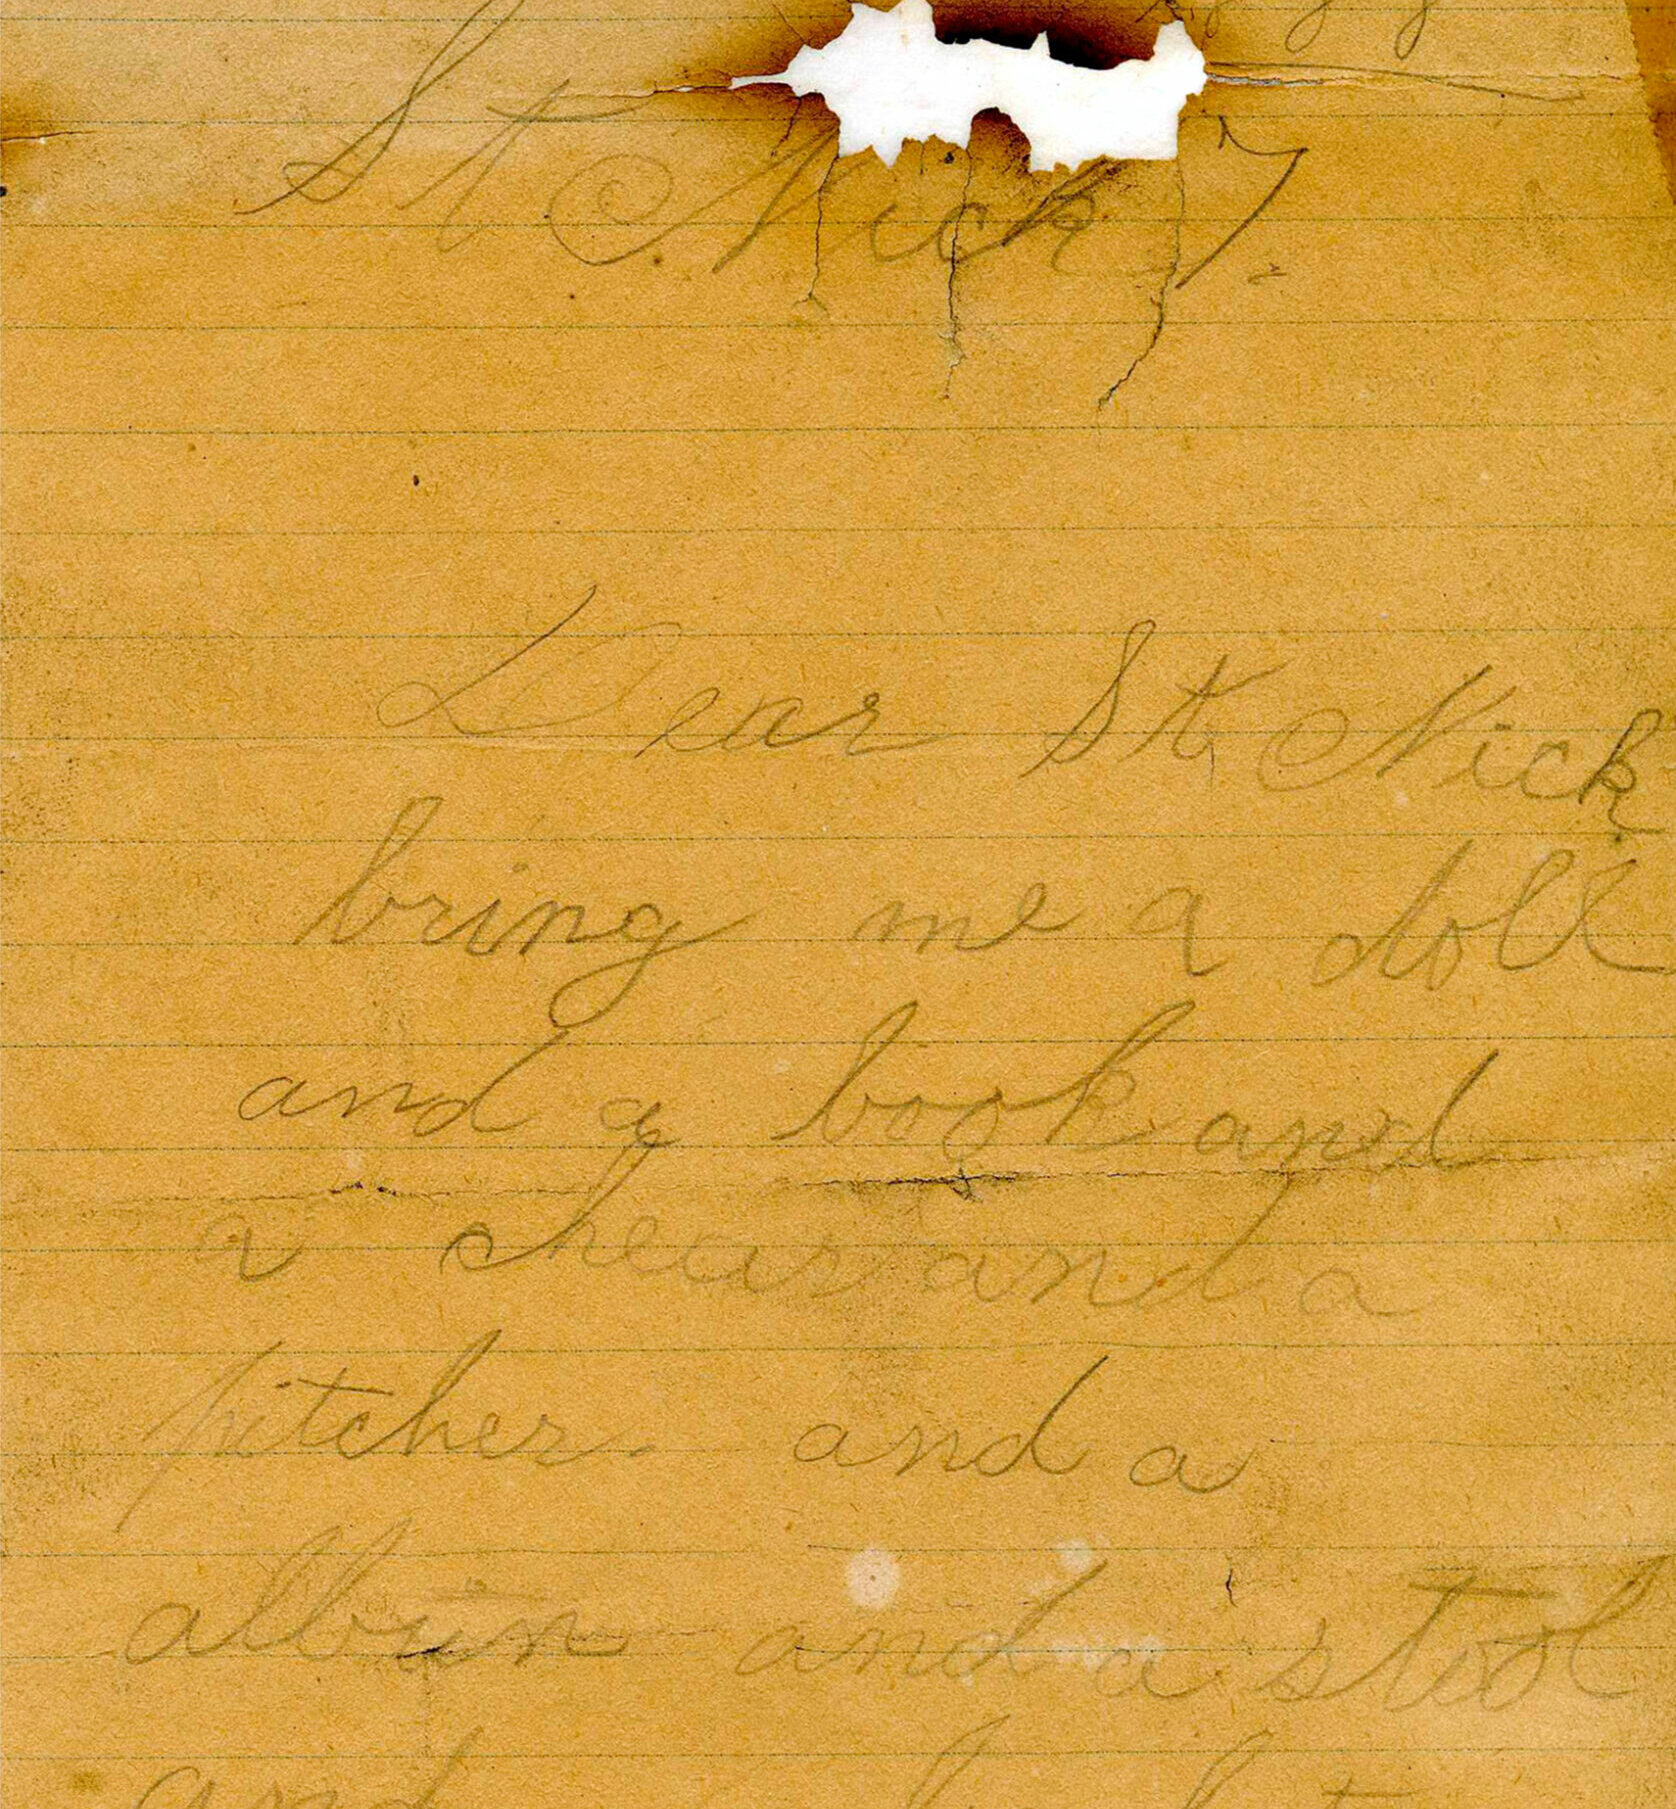 St Nick 7.
Dear St Nick
bring me a doll
and a book and
a chear and a
pitcher and a
albun and a stool
and